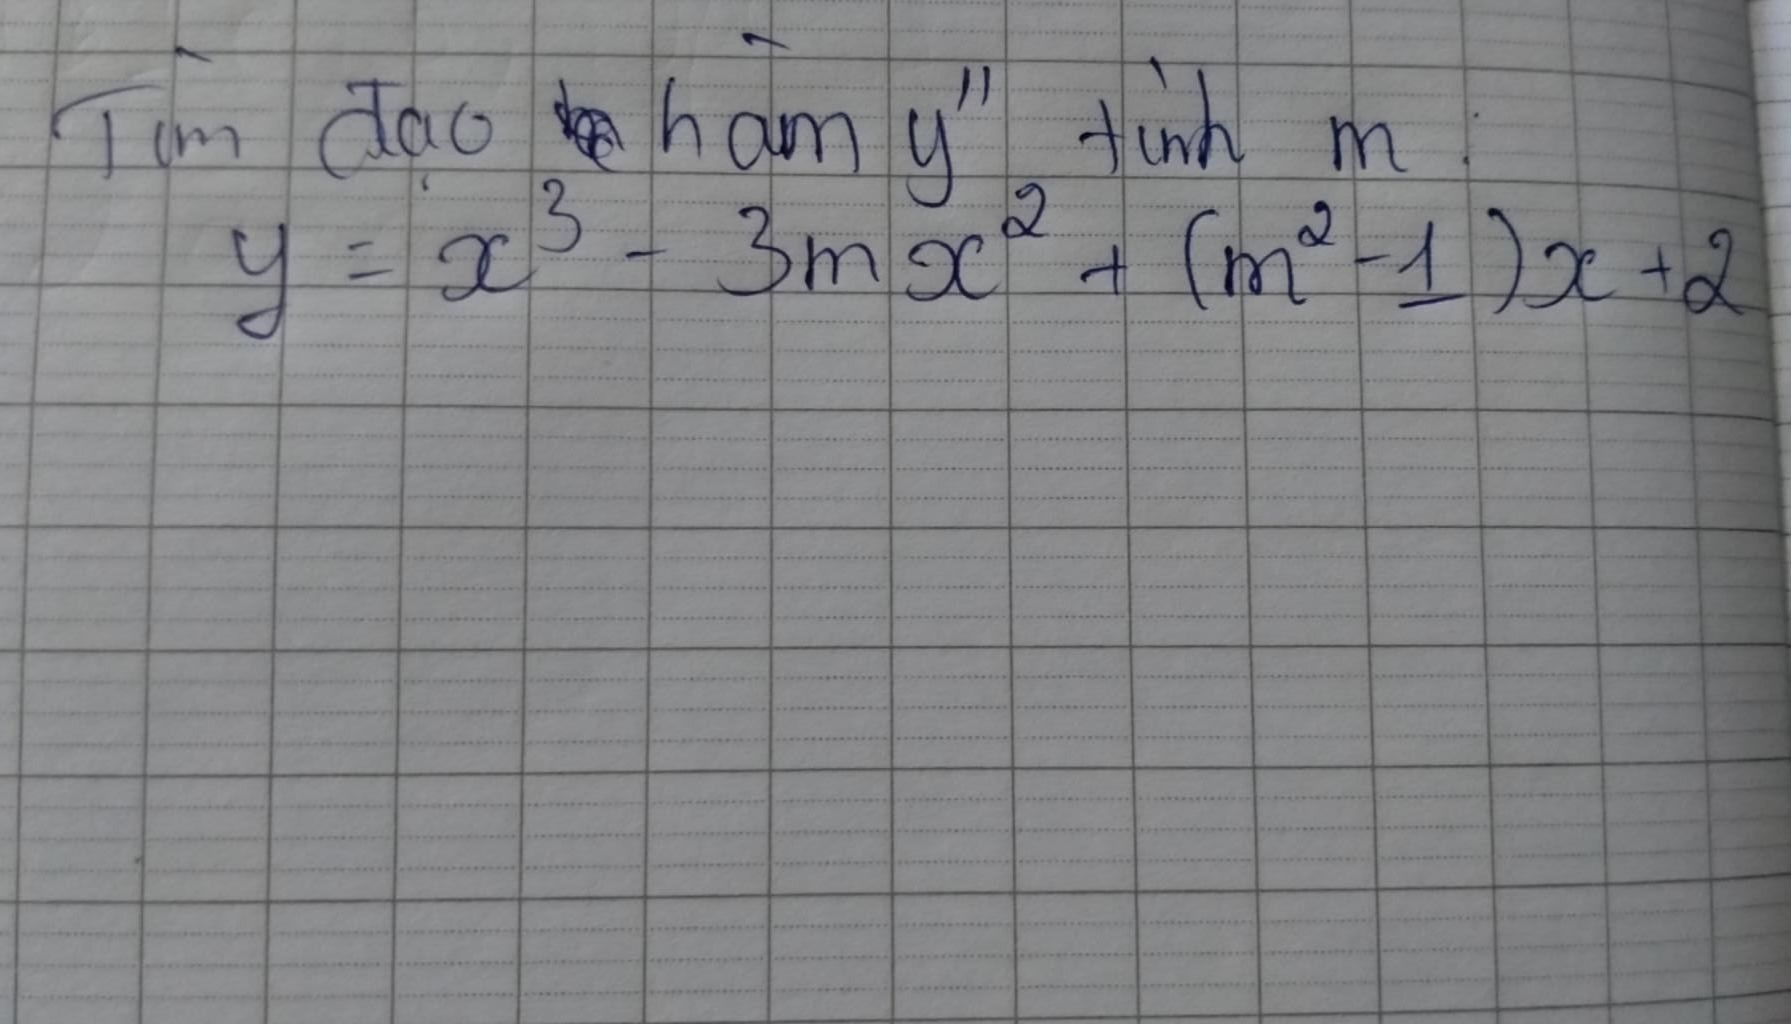 Tìm đạo hàm y'' tính m :
y = x³ - 3mx² + (m² - 1)x + 2